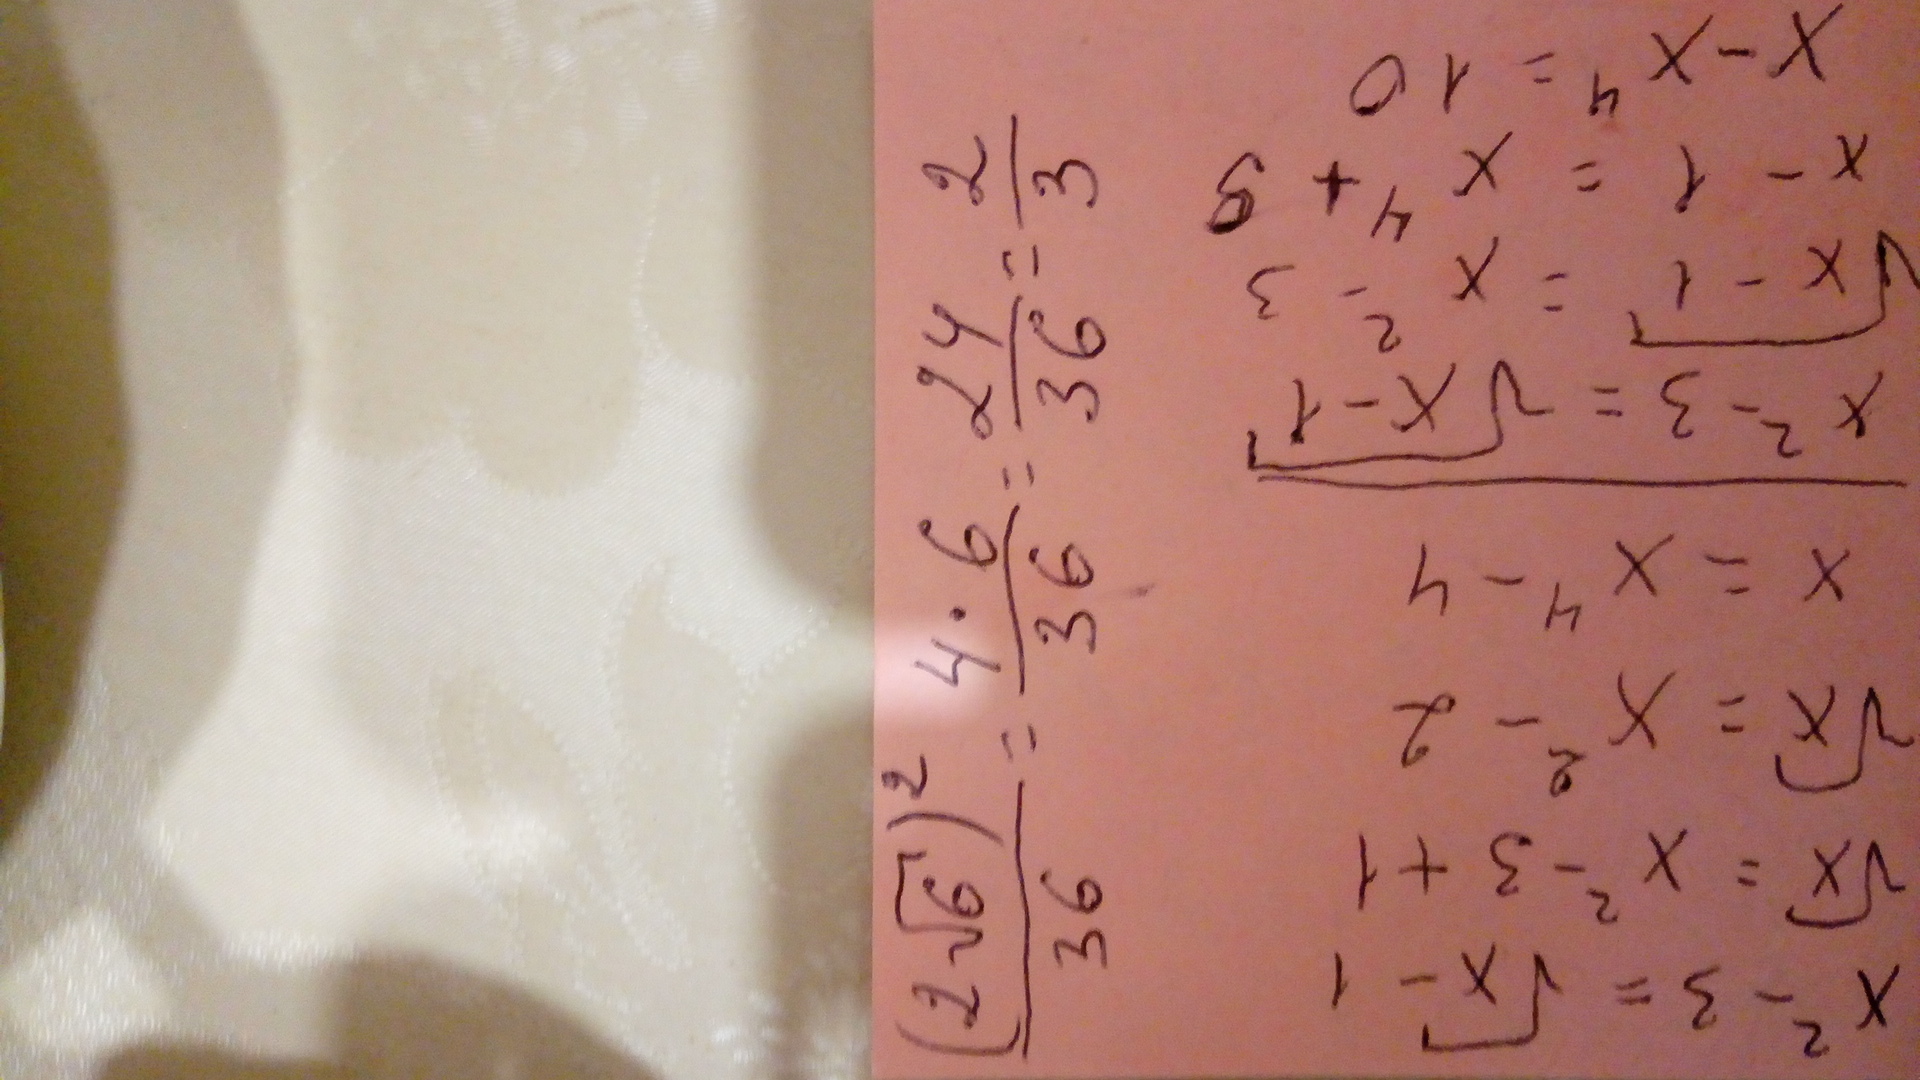 (2√6)²/36 = 4·6/36 = 24/36 = 2/3
x²-3=√x-1
√x=x²-3+1
√x=x²-2
x=x⁴-4
x²-3=√(x-1)
√(x-1)=x²-3
x-1=x⁴+9
x-x⁴=10